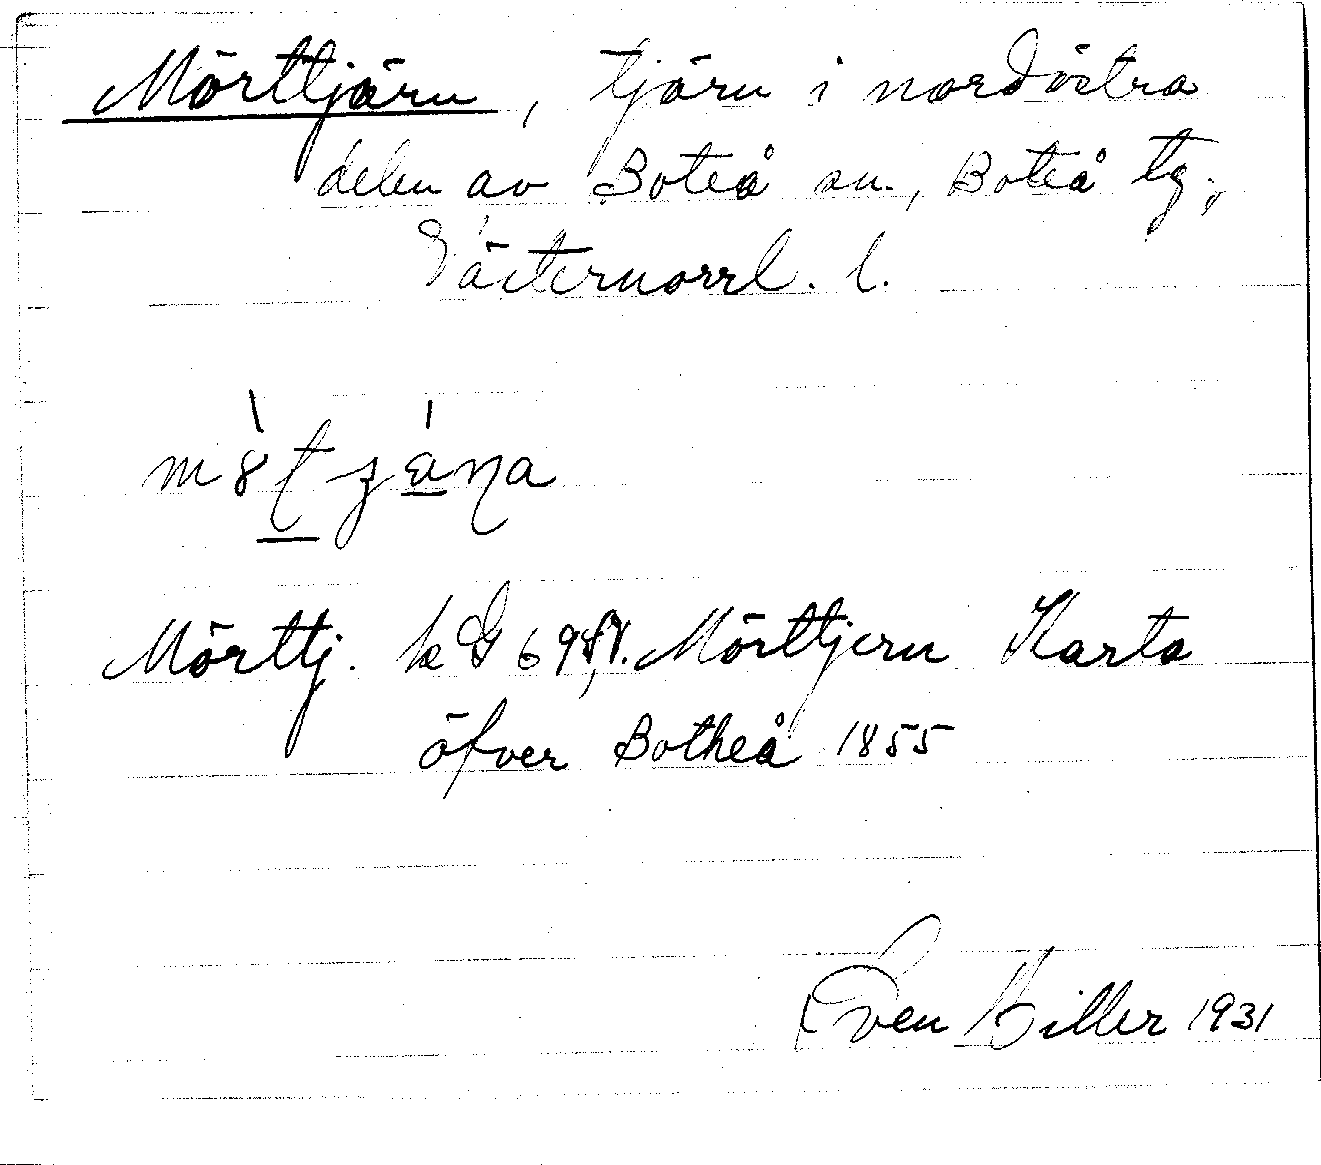 Mörttjärn, tjärn i nordvästra
delen av Boteå sn., Boteå tg.,
Västernorrl. l.
Mörttj. kG Mörttjern Karta
öfver Botheå 1855
Sven Hiller 1931